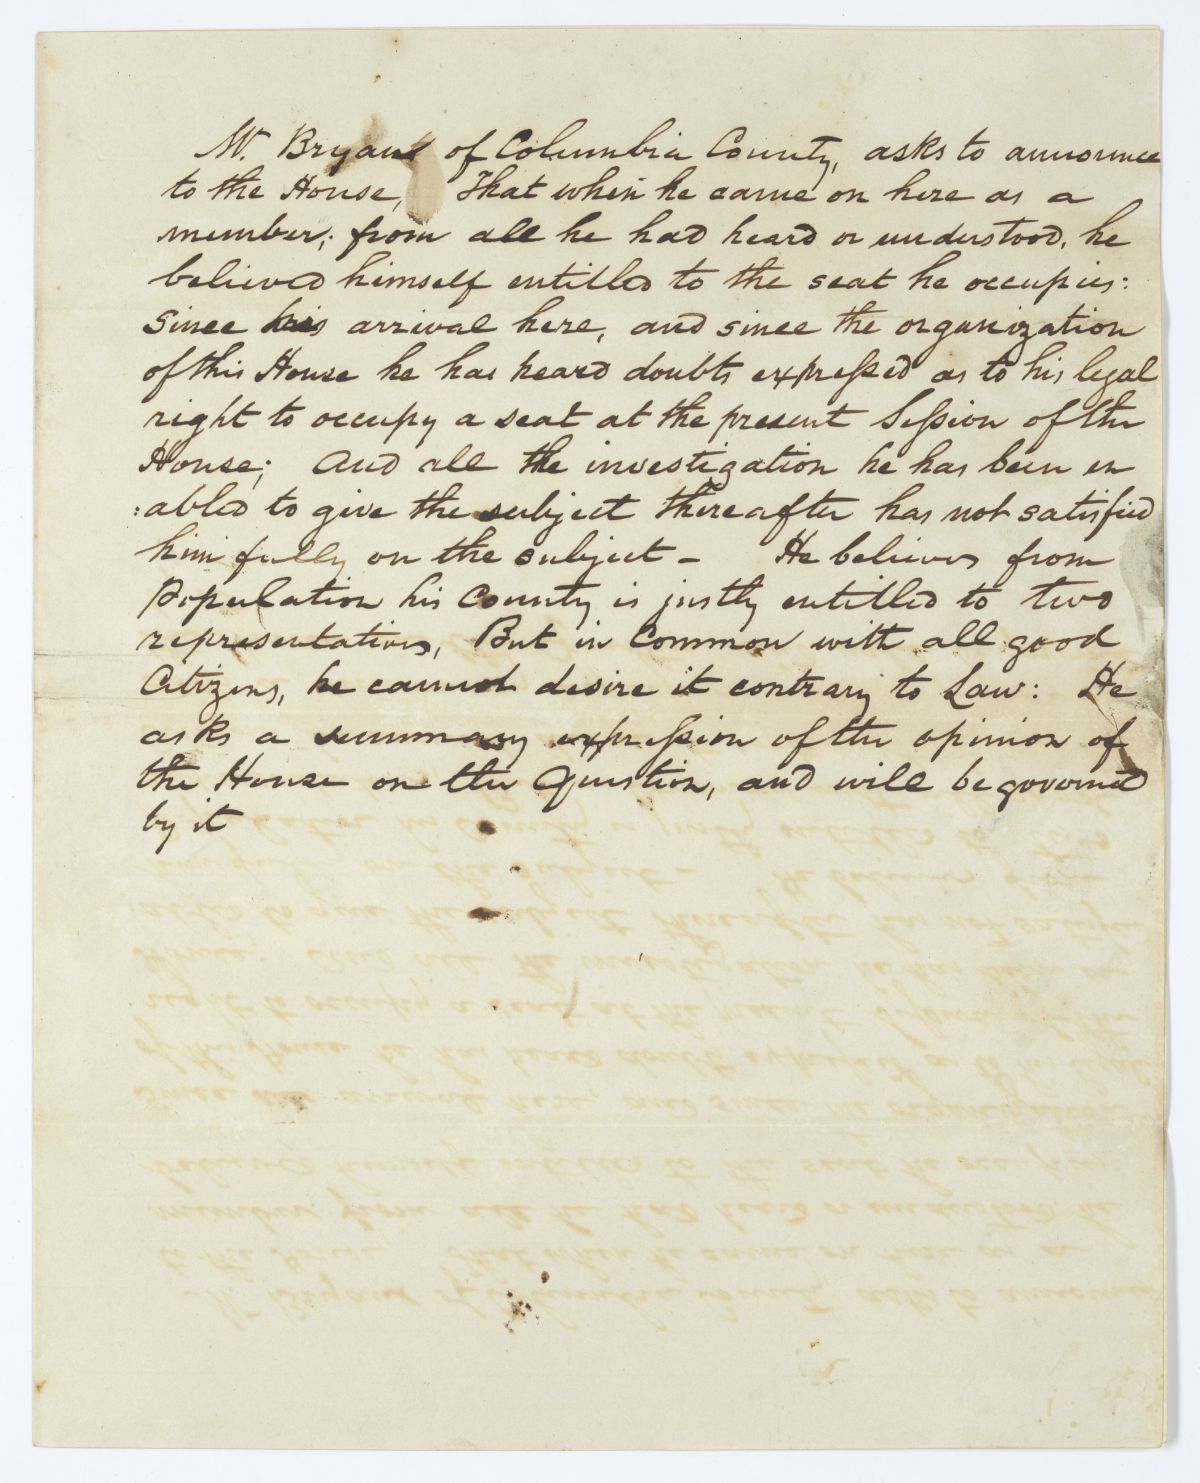 Mr. Bryant of Columbia County, asks to announce
to the House, That when he came on here as a
member; from all he had heard or understood, he
believed himself entitled to the seat he occupies:
Since his arrival here, and since the organization
of this House he has heard doubts expressed as to his legal
right to occupy a seat at the present Session of the
House; And all the investigation he has been en
:abled to give the subject thereafter has not satisfied
him fully on the subject - He believes from
Population his County is justly entitled to two
representatives, But in Common with all good
Citizens, he cannot desire it contrary to Law: He
asks a summary expression of the opinion of
the House on the Question, and will be governed
by it